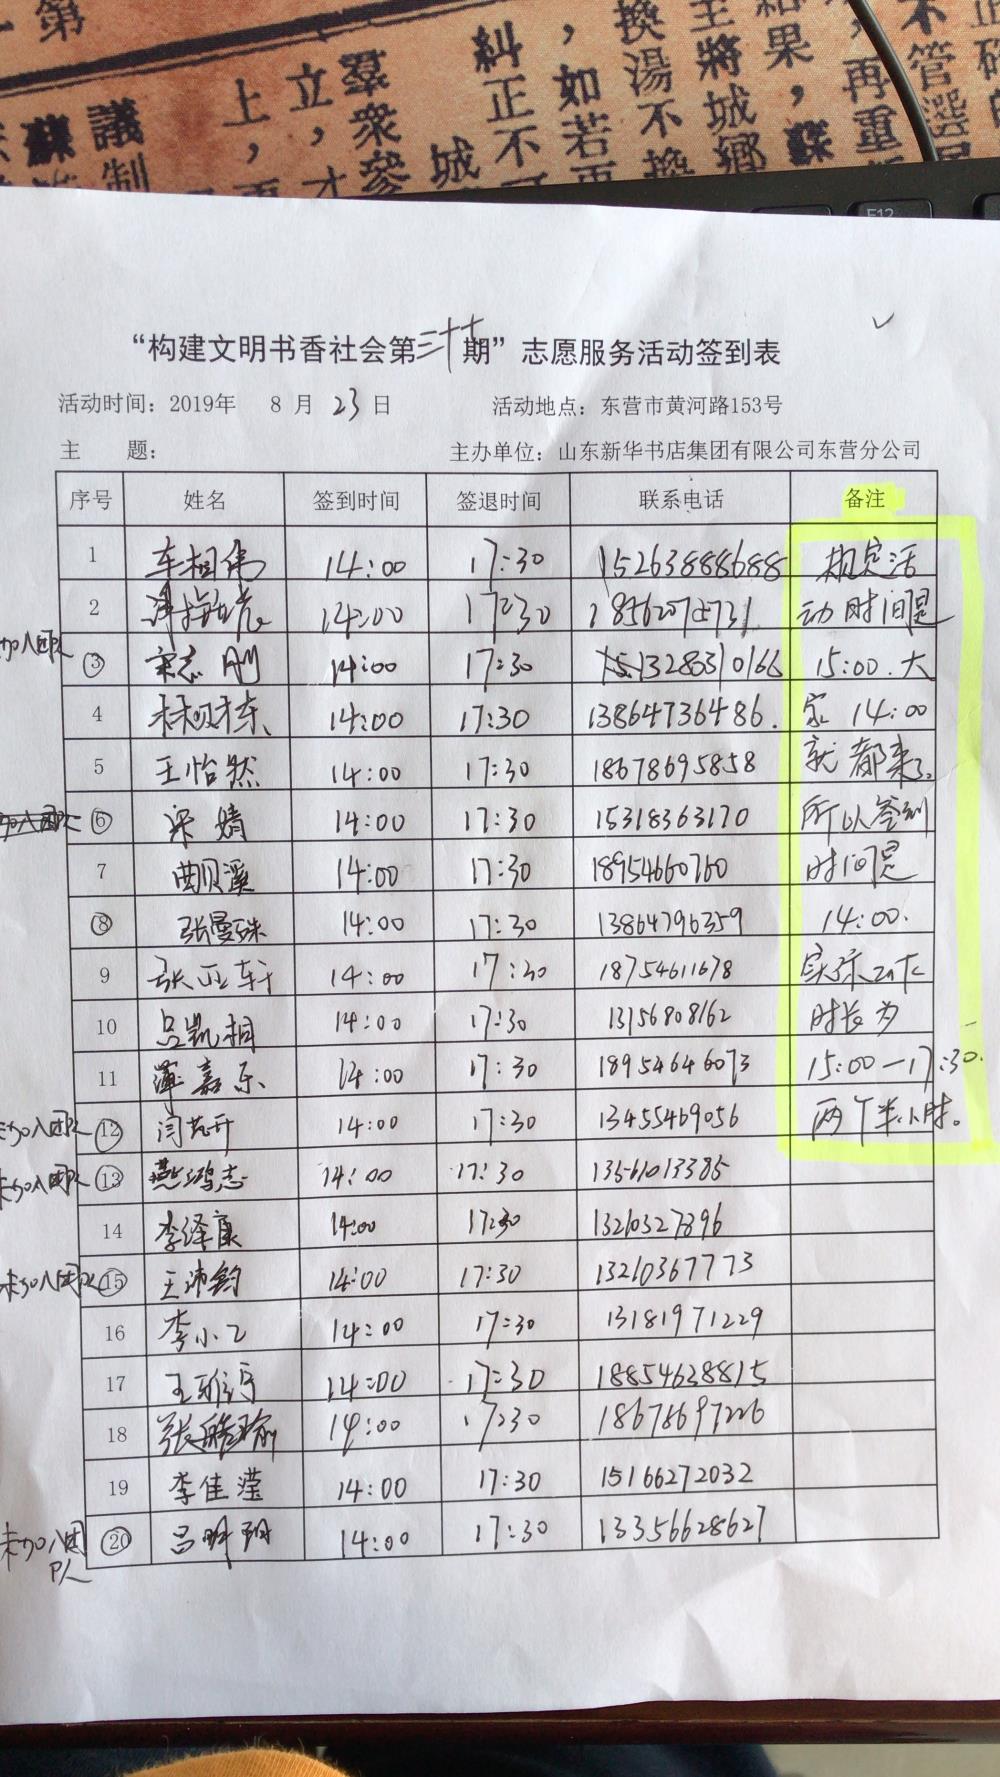 第
議制
蘇
上，
立，才
羣衆參
城
糾正不
，如若再
換湯不換
主將城鄉
結果，蘇
，再重
不管選
正確的
F12
“构建文明书香社会第三十期”志愿服务活动签到表
活动时间：2019年 8 月 23 日 活动地点：东营市黄河路153号
主 题： 主办单位：山东新华书店集团有限公司东营分公司
序号 姓名 签到时间 签退时间 联系电话 备注
1 车相伟 14:00 17:30 15263888688 规定活
2 14:00 17:30 动时间是
加入团队 3 宋志刚 14:00 17:30 13283310166 15:00.大
4 林栋 14:00 17:30 13864736486. 家 14:00
5 王怡然 14:00 17:30 18678695858 就都来了。
加入团队 6 宋婧 14:00 17:30 15318363170 所以签到
7 曲贝溪 14:00 17:30 18954660760 时间是
8 张曼姝 14:00 17:30 13864796359 14:00.
9 张亚轩 14:00 17:30 18754611678 实际工作
10 吕凯桐 14:00 17:30 13156808162 时长为
11 嘉乐 14:00 17:30 18954646073 15:00—17:30.
未加入团队 12 闫芃开 14:00 17:30 13455469056 两个半小时。
未加入团队 13 燕鸿志 14:00 17:30 13561013385
14 李泽康 14:00 17:30 13210327896
未加入团队 15 王沛钧 14:00 17:30 13210367773
16 李小乙 14:00 17:30 13181971229
17 王雅 14:00 17:30 18854628815
18 张皓瑜 14:00 17:30 18678697226
19 李佳滢 14:00 17:30 15166272032
未加入团队 20 吕明玥 14:00 17:30 13356628627